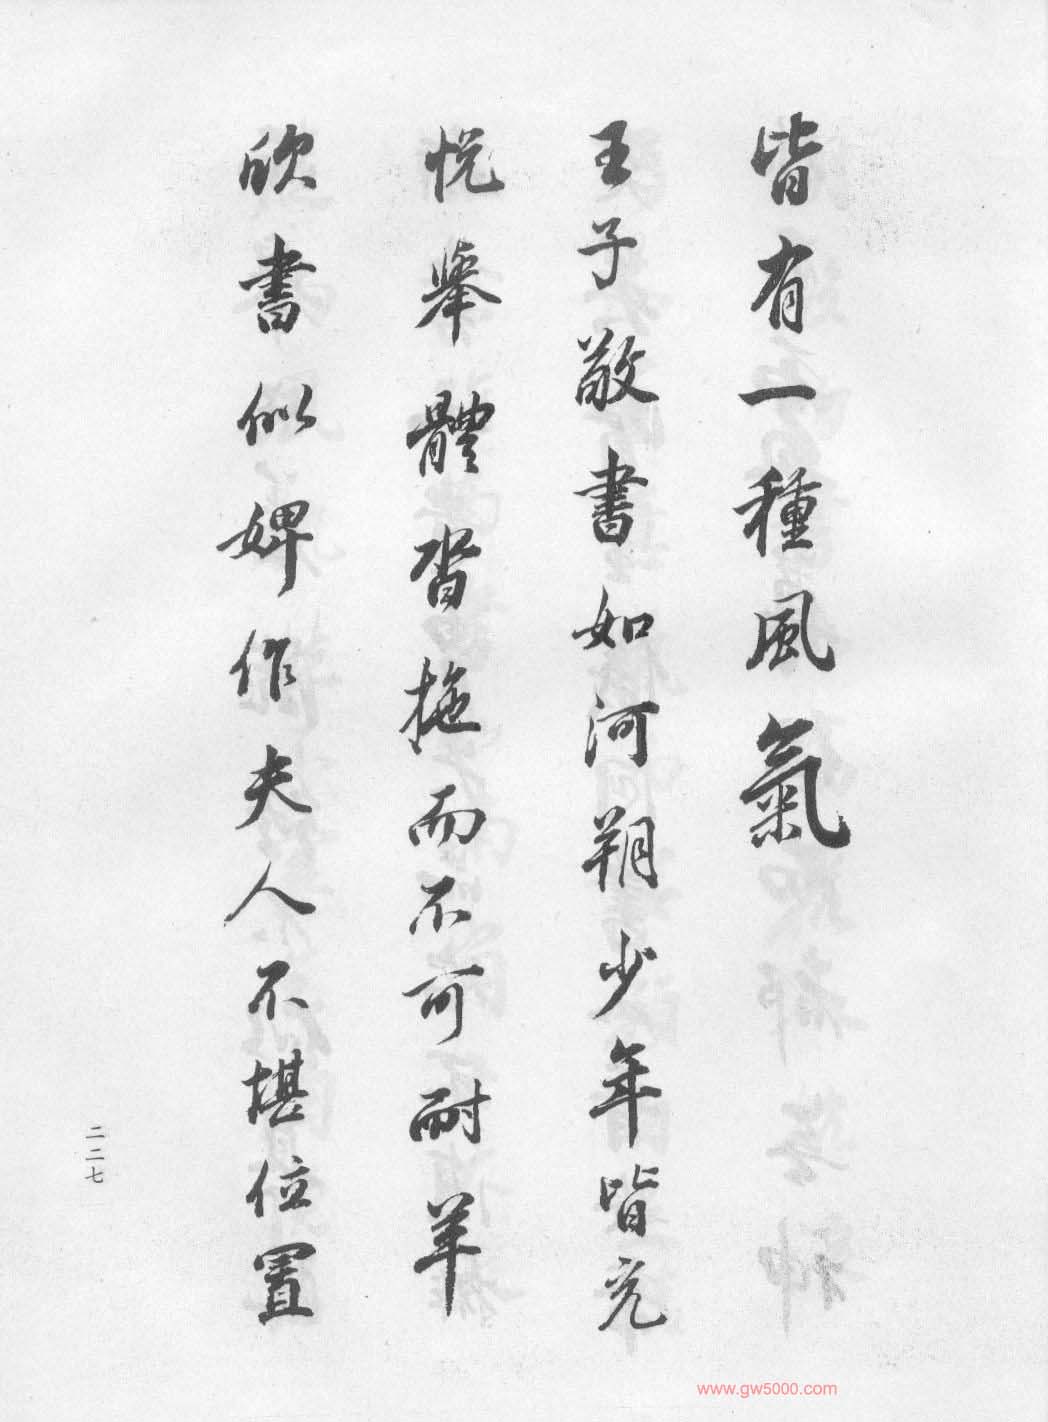 皆有一種風氣
王子敬書如河朔少年皆充
悅舉體沓拖而不可耐羊
欣書似婢作夫人不堪位置
二二七
www.gw5000.com